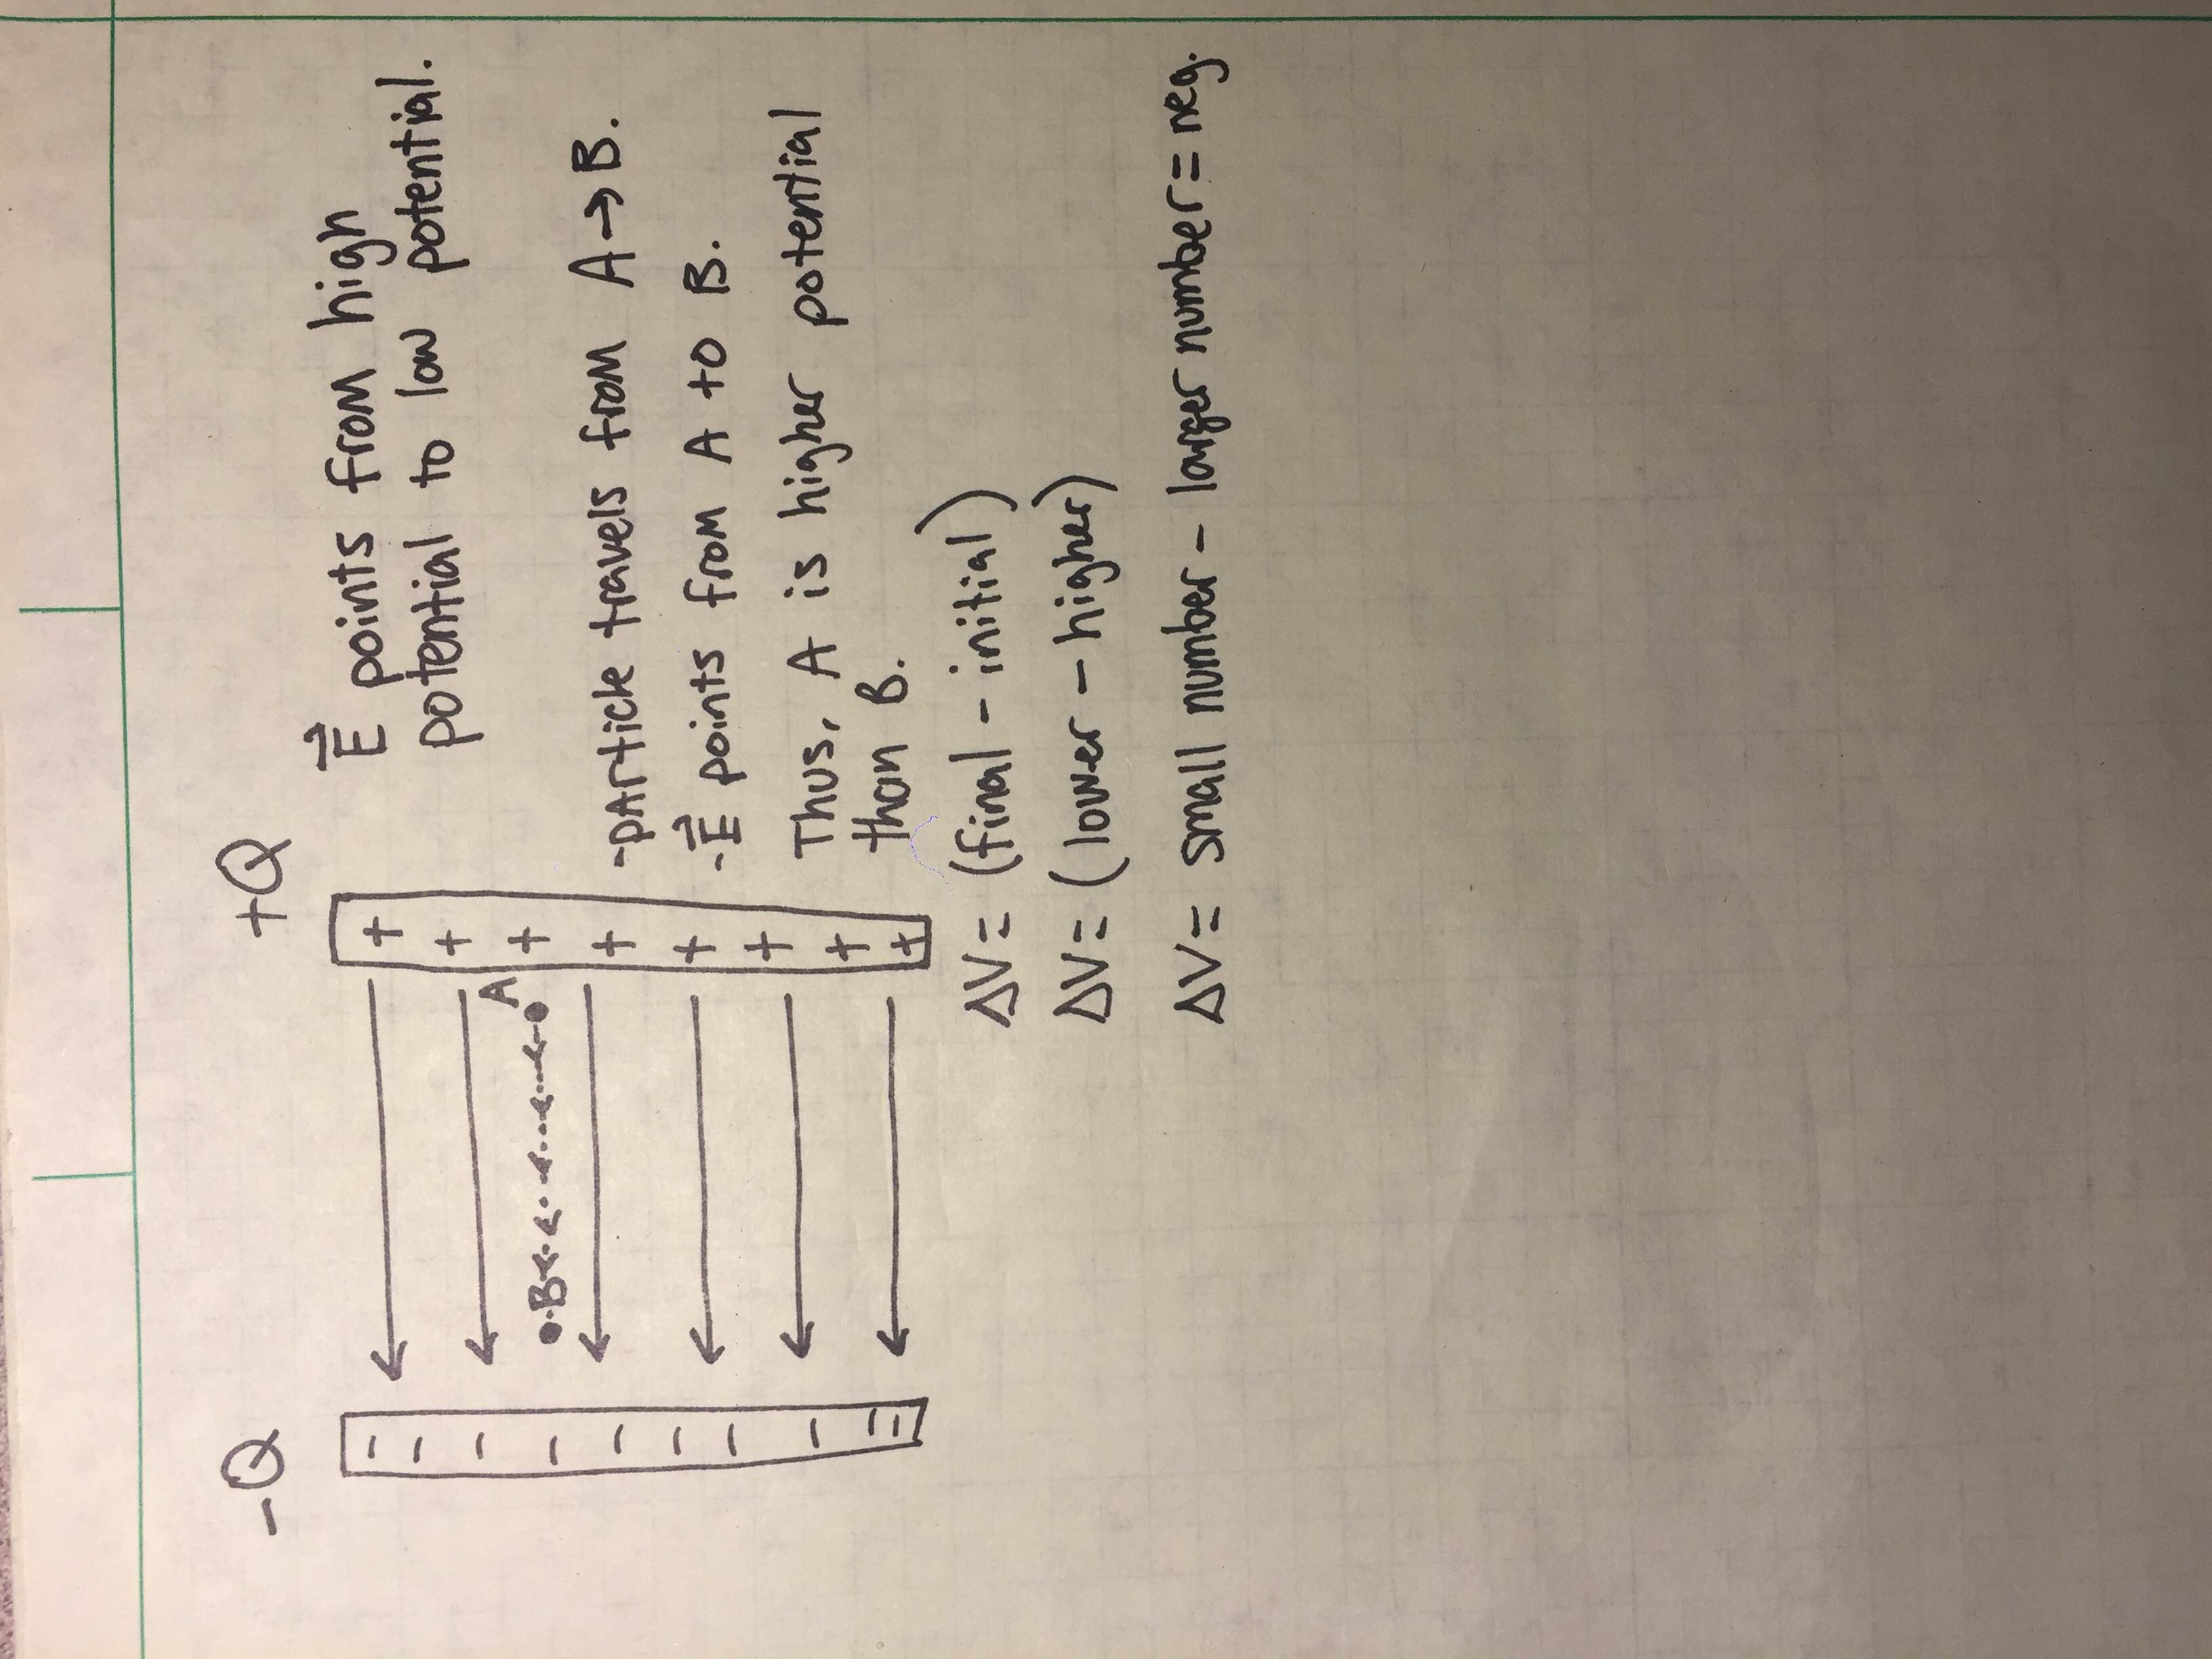 -Q +Q
E⃗ points from high
potential to low potential.
- - - - - - - - - -
+ + + + + + + +
A
B
-particle travels from A→B.
-E⃗ points from A to B.
Thus, A is higher potential
than B.
ΔV= (final - initial)
ΔV= (lower - higher)
ΔV= small number - larger number= neg.